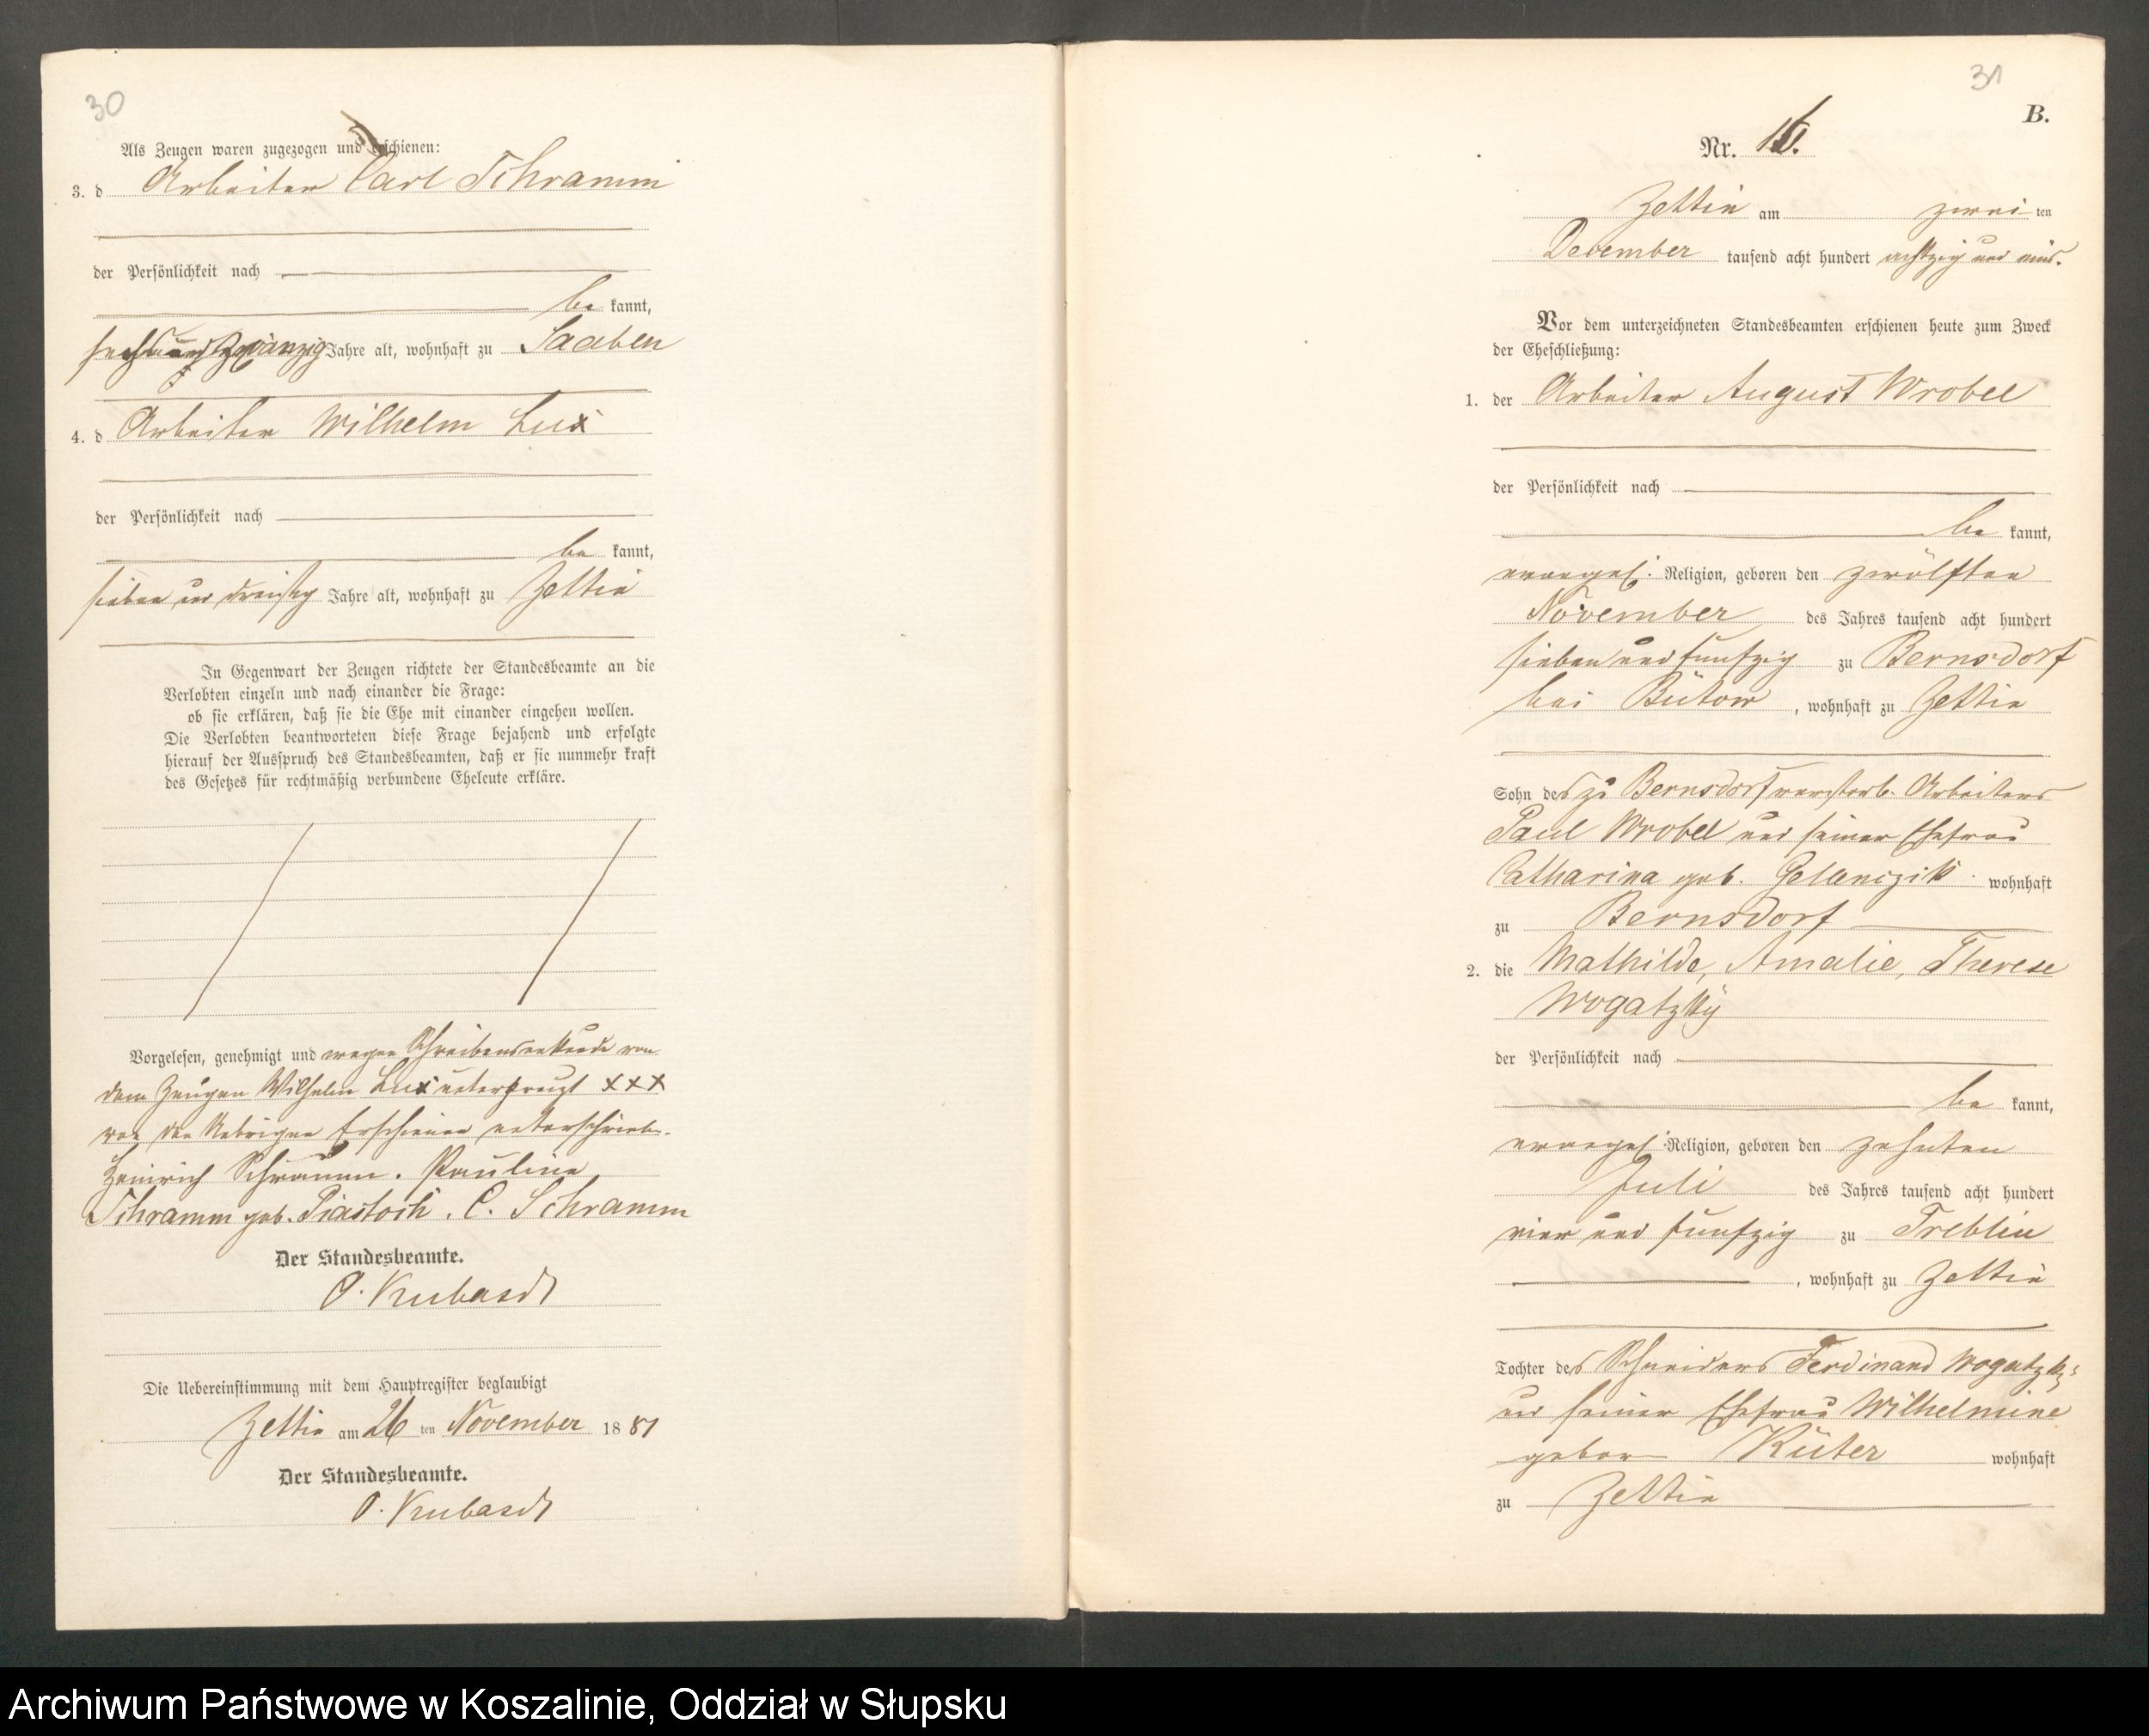 30
Als Zeugen waren zugezogen und erschienen:
3. d Arbeiter Carl Schramm
der Persönlichkeit nach
be kannt,
sechsundzwanzig Jahre alt, wohnhaft zu Saaben
4. d Arbeiter Wilhelm Lux
der Persönlichkeit nach
be kannt,
sieben und dreißig Jahre alt, wohnhaft zu Zettin
In Gegenwart der Zeugen richtete der Standesbeamte an die
Verlobten einzeln und nach einander die Frage:
ob sie erklären, daß sie die Ehe mit einander eingehen wollen.
Die Verlobten beantworteten diese Frage bejahend und erfolgte
hierauf der Ausspruch des Standesbeamten, daß er sie nunmehr kraft
des Gesetzes für rechtmäßig verbundene Eheleute erkläre.
Vorgelesen, genehmigt und wegen Schreibensunkunde von
dem Zeugen Wilhelm Lux unterkreuzt XXX
von den Uebrigen Erschienen unterschrieben.
Heinrich Schramm. Pauline
Schramm geb. Piastoch. C. Schramm
Der Standesbeamte.
O. Kubasch
Die Uebereinstimmung mit dem Hauptregister beglaubigt
Zettin am 26 ten November 18 81
Der Standesbeamte.
O. Kubasch
31
B.
Nr. 16.
Zettin am zwei ten
December tausend acht hundert achtzig und eins.
Vor dem unterzeichneten Standesbeamten erschienen heute zum Zweck
der Eheschließung:
1. der Arbeiter August Wrobel
der Persönlichkeit nach
be kannt,
evangel. Religion, geboren den zwölften
November des Jahres tausend acht hundert
sieben und fünfzig zu Bernsdorf
bei Bütow, wohnhaft zu Zettin
Sohn des zu Bernsdorf verstorb. Arbeiters
Paul Wrobel und seiner Ehefrau
Catharina geb. wohnhaft
zu Bernsdorf
2. die Mathilde, Amalie, Therese
Wogatzky
der Persönlichkeit nach
be kannt,
evangel. Religion, geboren den zehnten
Juli des Jahres tausend acht hundert
vier und fünfzig zu Treblin
, wohnhaft zu Zettin
Tochter des Schneiders Ferdinand Wogatzky
und seiner Ehefrau Wilhelmine
gebor Küter wohnhaft
zu Zettin
Archiwum Państwowe w Koszalinie, Oddział w Słupsku